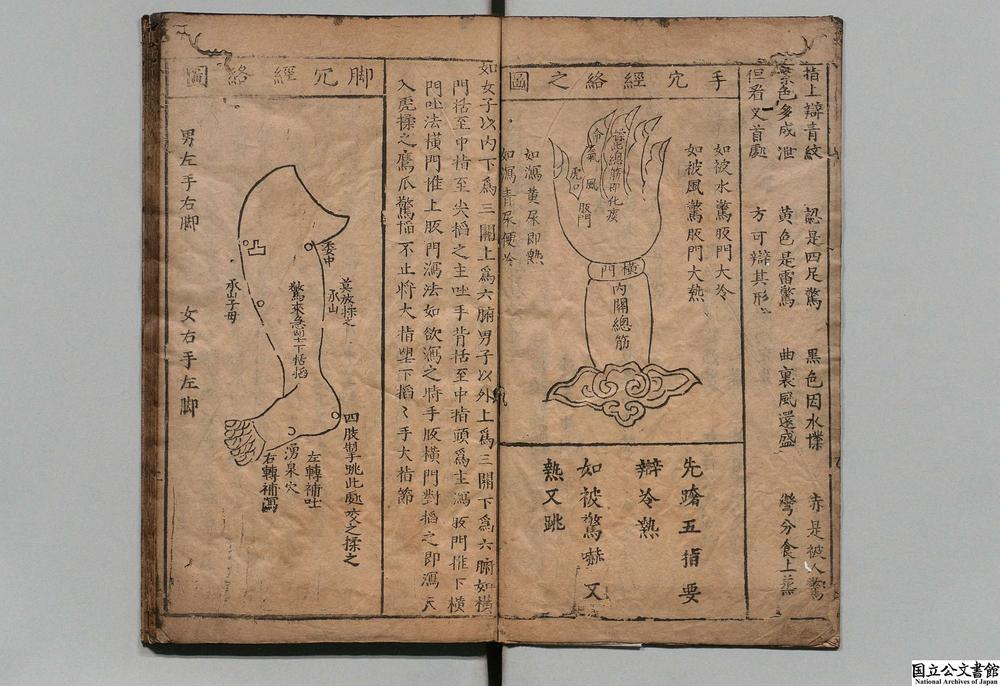 指上辯青紋 認是四足驚 黑色因水㩧 赤是被人驚
紫色多成泄 黃色是雷驚 曲裏風還盛 彎分食上蒸
但看叉首處 方可辯其形
手宂經絡之圖
如被水驚肢門大冷
如被風驚肢門大熱
橫門
內關總筋
虎口
風
氣
命
肢門
如瀉黃屎即熱
如瀉青屎便冷
先蹻五指要
辯冷熱
如被驚嚇又
熱又跳
如女子以內下爲三關上爲六腑男子以外上爲三關下爲六腑如橫
門括至中指至尖掐之主吐手背括至中指頭爲主瀉肢門推下橫
門吐法橫門推上肢門瀉法如欲瀉之時手肢橫門對掐之即瀉天
入虎揉之鷹爪驚掐不止將大指望下掐〻手大指節
脚宂經絡圖
委中
莫放揉之
承山
驚來急
承山子母
男左手右脚
女右手左脚
四肢掣手跳此處咬之揉之
左轉補吐
湧泉穴
右轉補瀉
国立公文書館
National Archives of Japan